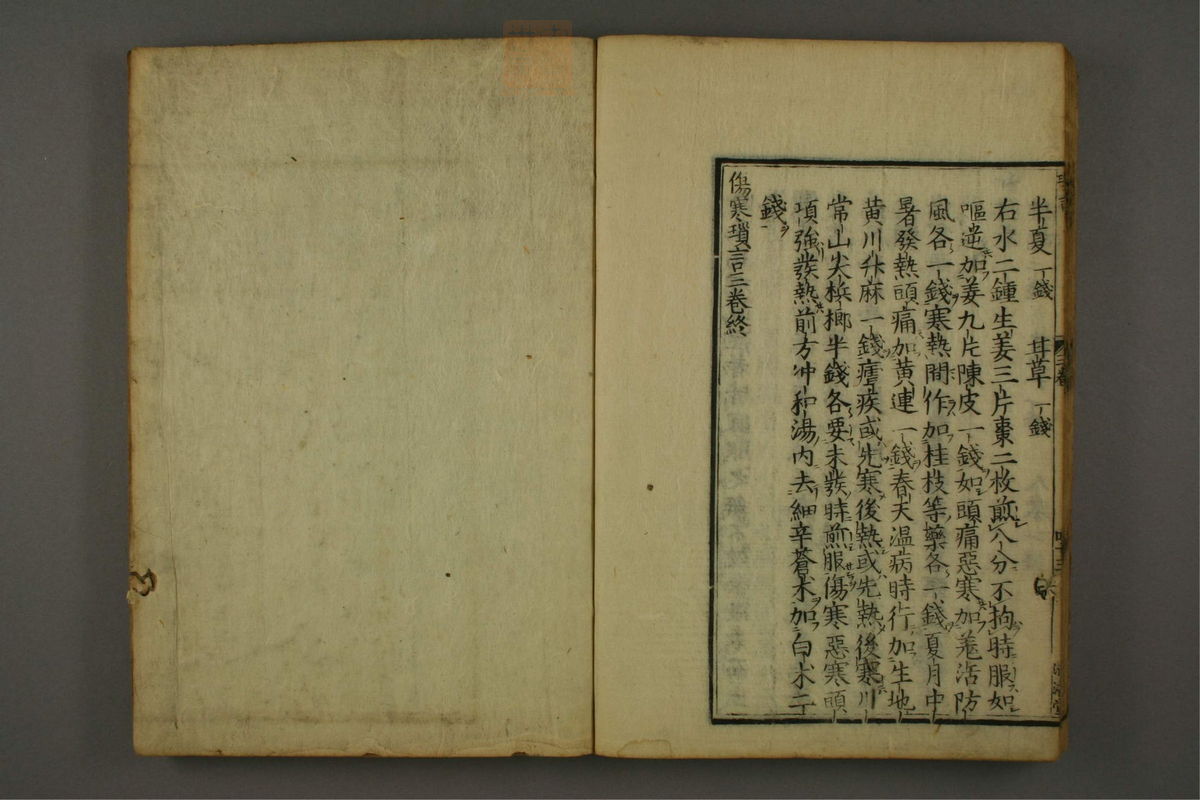 半夏 一錢 甘草 一錢
右水二鍾生姜三片棗二枚煎八分不拘時服如
嘔逆加姜九片陳皮一錢如頭痛惡寒加羗活防
風各一錢寒熱間作加桂枝等藥各一錢夏月中
暑發熱頭痛加黄連一錢春天温病時行加生地
黄川升麻一錢瘧疾或先寒後熱或先熱後寒川
常山尖梹榔半錢各要未發時煎服傷寒惡寒頭
項強發熱前方冲和湯内去細辛蒼术加白术二
錢
傷寒瑣言三卷終